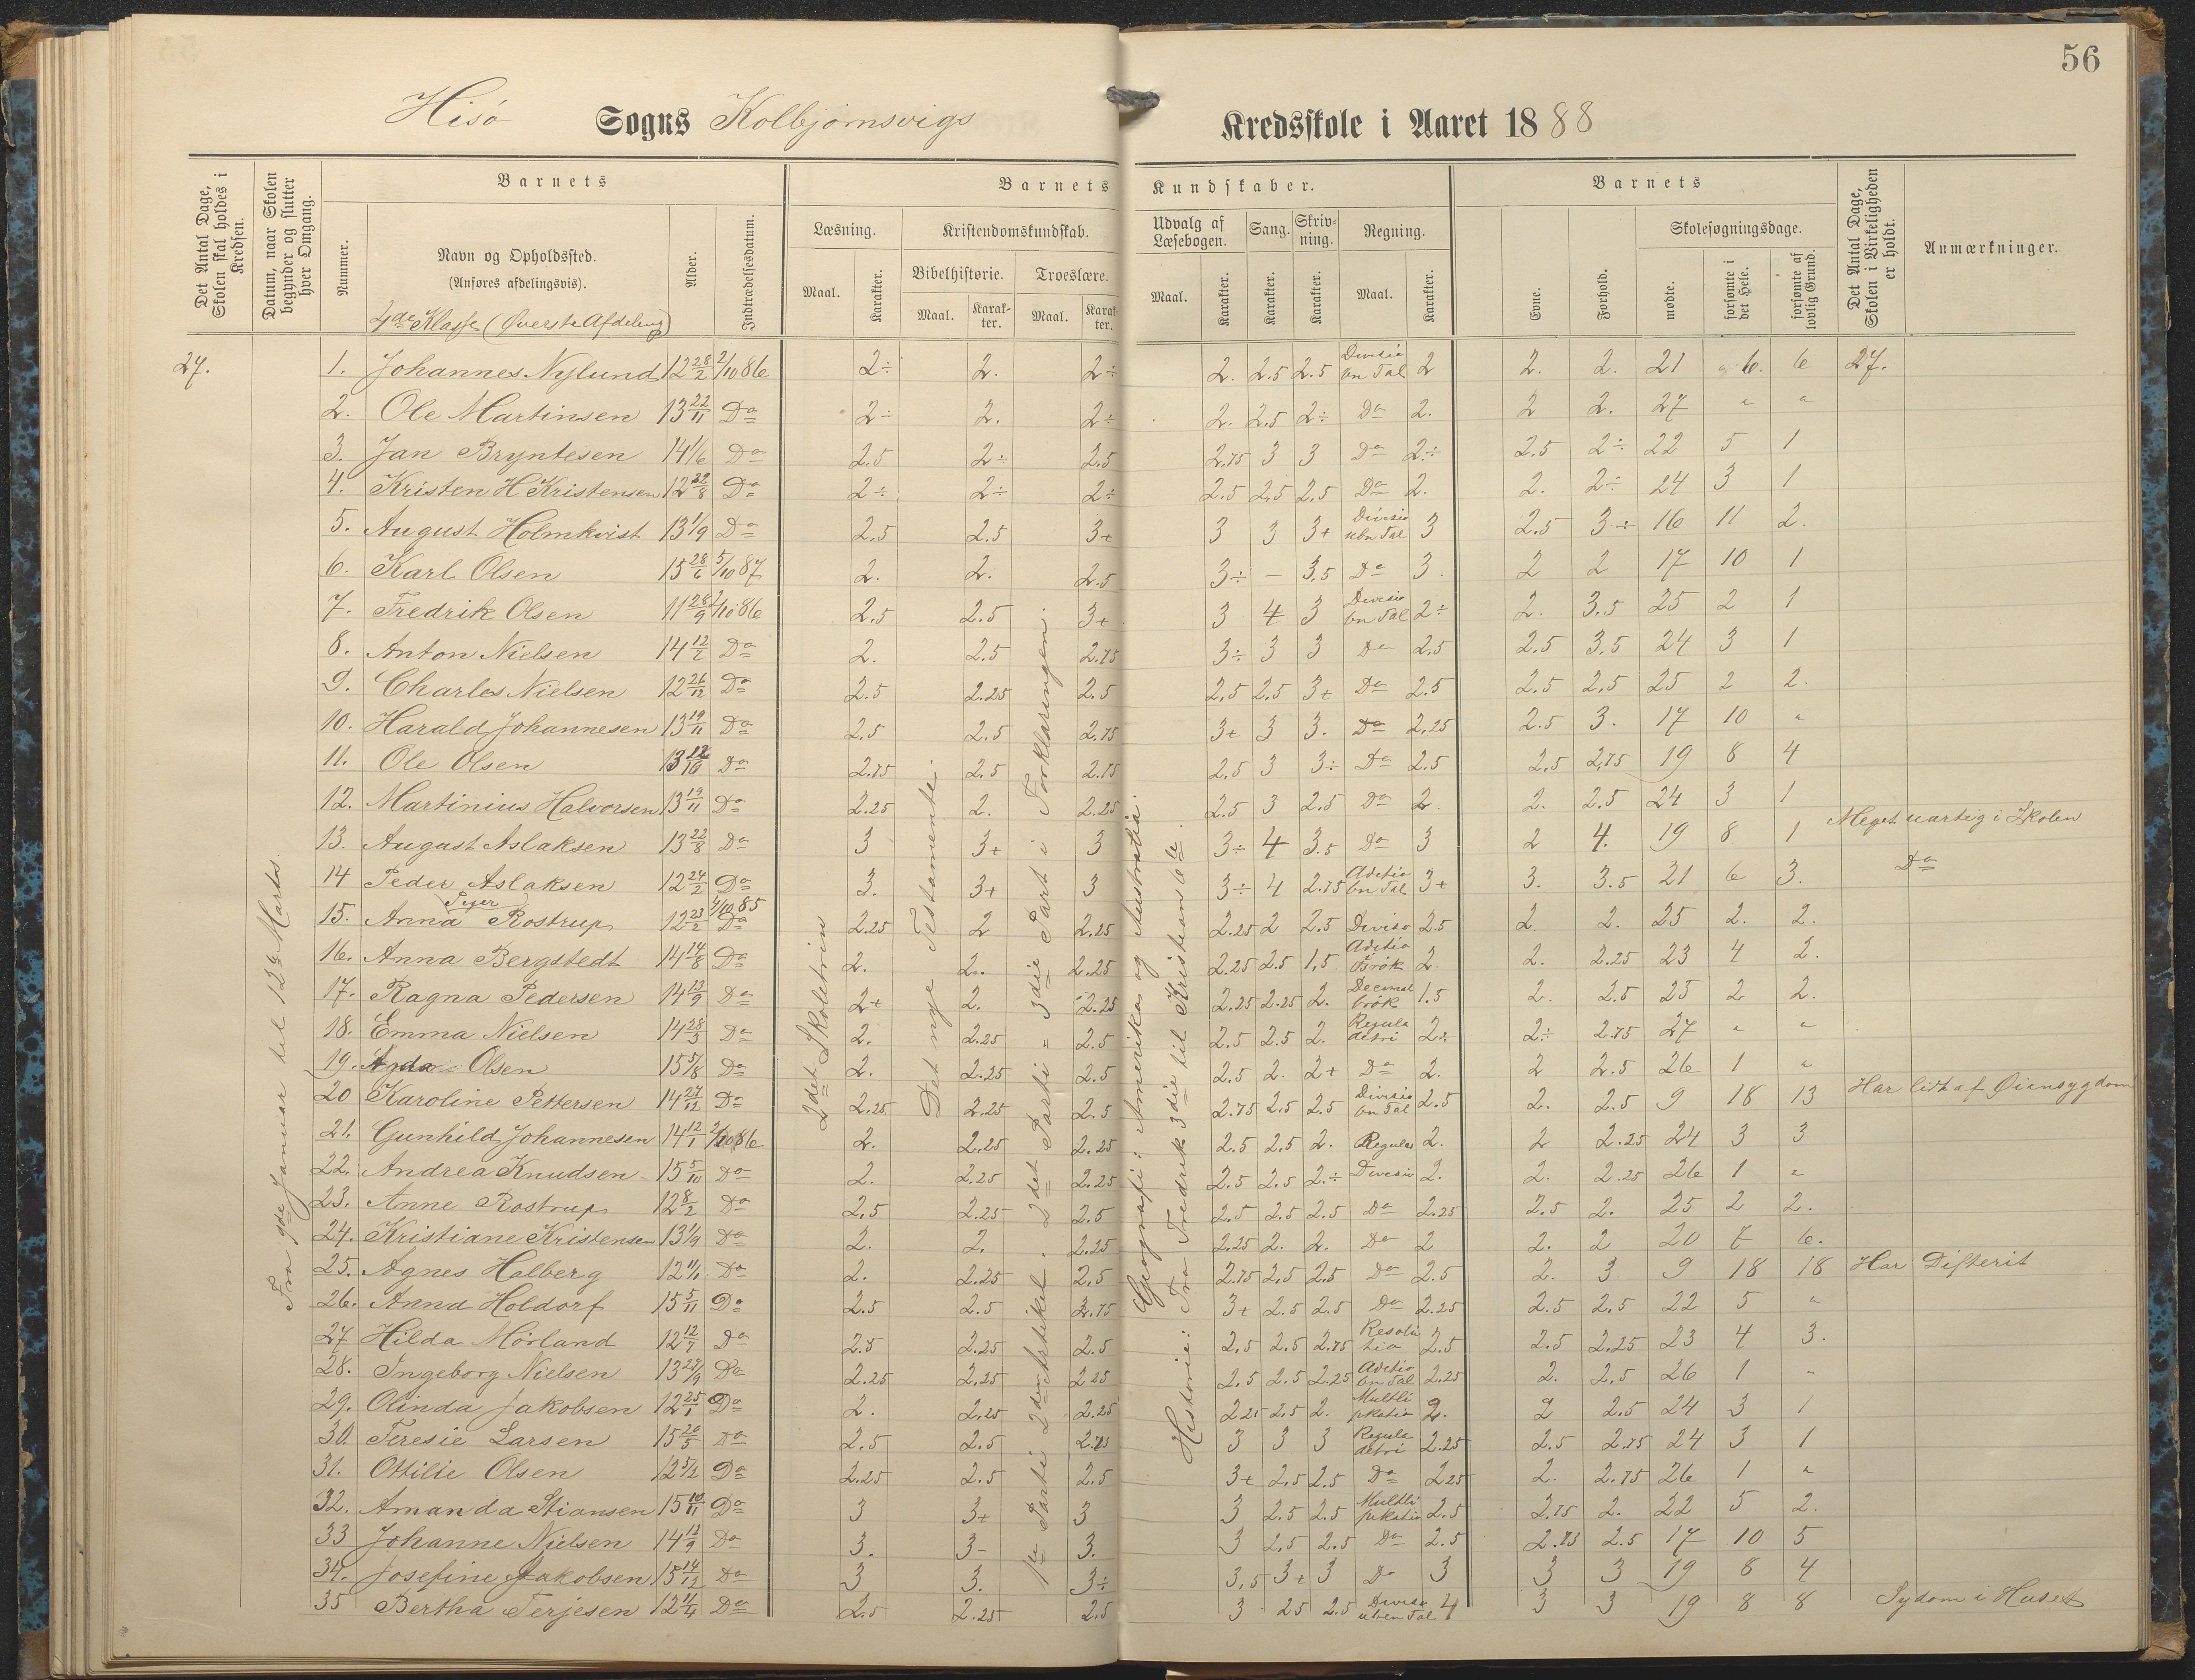 56
Hisö Sogns Kolbjørnsvigs Kredsskole i Aaret 1888
Det Antal Dage, Skolen skal holdes i Kredsen.
Datum, naar Skolen begynder og slutter hver Omgang.
Barnets
Nummer.
Navn og Opholdssted.
(Anføres afdelingsvis).
4de Klasse (Øverste Afdeling)
Alder.
Indtrædelsesdatum.
Barnets Kundskaber.
Læsning.
Maal.
Karakter.
Kristendomskundskab.
Bibelhistorie.
Maal.
Karakter.
Troeslære.
Maal.
Karakter.
Udvalg af Læsebogen.
Maal.
Karakter.
Sang.
Karakter.
Skrivning.
Karakter.
Regning.
Maal.
Karakter.
Barnets
Evne.
Forhold.
Skolesøgningsdage.
mødte.
forsømte i det Hele.
forsømte af lovlig Grund.
Det Antal Dage, Skolen i Virkeligheden er holdt.
Anmærkninger.
27.
Fra 9de Januar til 12te Marts.
2det Skoletrin
Det nye Testamente.
1ste Parti 2den Artikel. 2det Parti = 3die Part i Forklaringen.
Geografi: Amerika og Australia.
Historie: Fra Fredrik 3die til Kristian 6te.
1. Johannes Nylund 12 28/2 2/10 86 2÷ 2. 2÷ 2. 2.5 2.5 Divisio bn Tal 2 2. 2. 21 6. 6 27.
2. Ole Martinsen 13 22/11 Do 2÷ 2. 2÷ 2. 2.5 2÷ Do 2. 2 2. 27 " "
3. Jan Bryntesen 14 1/6 Do 2.5 2÷ 2.5 2.75 3 3 Do 2÷ 2.5 2÷ 22 5 1
4. Kristen H Kristensen 12 22/8 Do 2÷ 2÷ 2÷ 2.5 2.5 2.5 Do 2. 2. 2÷ 24 3 1
5. August Holmkvist 13 1/9 Do 2.5 2.5 3+ 3 3 3+ Divisio ubn Tal 3 2.5 3÷ 16 11 2.
6. Karl Olsen 15 28/6 5/10 87 2. 2. 2.5 3÷ – 3.5 Do 3. 2 2 17 10 1
7. Fredrik Olsen 11 28/9 2/10 86 2.5 2.5 3+ 3 4 3 Divisio bn Tal 2÷ 2. 3.5 25 2 1
8. Anton Nielsen 14 Do 2. 2.5 2.75 3÷ 3 3 Do 2.5 2.5 3.5 24 3 1
9. Charles Nielsen 12 26/12 Do 2.5 2.25 2.5 2.5 2.5 3+ Do 2.5 2.5 2.5 25 2 2.
10. Harald Johannesen 13 19/11 Do 2.5 2.5 2.75 3+ 3 3. Do 2.25 2.5 3. 17 10 "
11. Ole Olsen 13 Do 2.75 2.5 2.75 2.5 3 3÷ Do 2.5 2.5 2.75 19 8 4
12. Martinius Halvorsen 13 19/11 Do 2.25 2. 2.25 2.5 3 2.5 Do 2. 2. 2.5 24 3 1
13. August Aslaksen 13 22/8 Do 3 3+ 3 3÷ 4 3.5 Do 3 2 4. 19 8 1 Meget uartig i Skolen
14 Peder Aslaksen 12 24/2 Do 3. 3+ 3 3÷ 4 2.75 Aditio bn Tal 3+ 3. 3.5 21 6 3. Do
Piger
15. Anna Rostrup 12 23/2 1/10 85 Do 2.25 2 2.25 2.25 2 2.5 Diviso 2.5 2. 2. 25 2. 2.
16. Anna Bergstedt 14 14/8 Do 2. 2. 2.25 2.25 2.5 1.5 Aditio Brök 2. 2. 2.25 23 4 2.
17. Ragna Pedersen 14 13/9 Do 2+ 2. 2.25 2.25 2.25 2. Decimal brök 1.5 2. 2.5 25 2 2.
18. Emma Nielsen 14 28/3 Do 2. 2.25 2.5 2.5 2.5 2. Regula detri 2÷ 2÷ 2.75 27 " "
19. Olsen 15 5/8 Do 2. 2.25 2.5 2.5 2. 2+ Do 2. 2 2.5 26 1 "
20 Karoline Pettersen 14 27/12 Do 2.25 2.25 2.5 2.75 2.5 2.5 Divisio bn Tal 2.5 2. 2.5 9 18 13 Har lidt af Øiensygdom
21. Gunhild Johannesen 14 12/1 2/10 86 2. 2.25 2.25 2.5 2.5 2. Regula 2. 2 2.25 24 3 3
22. Andrea Knudsen 15 5/10 Do 2. 2.25 2.25 2.5 2.5 2.÷ Divisio 2. 2. 2.25 26 1 "
23. Anne Rostrup 12 8/2 Do 2.5 2.25 2.5 2.5 2.5 2.5 Do 2.25 2.5 2. 25 2 2.
24. Kristiane Kristensen 13 1/9 Do 2. 2. 2.25 2.25 2. 2. Do 2 2. 2 20 7 6.
25. Agnes Halberg 12 11/1 Do 2. 2.25 2.5 2.75 2.5 2.5 Do 2.5 2. 3. 9 18 18 Har Difterit
26. Anna Holdorf 15 5/11 Do 2.5 2.5 2.75 3+ 2.5 2.5 Do 2.25 2.5 2.5 22 5 "
27 Hilda Mörland 12 12/7 Do 2.5 2.25 2.5 2.5 2.5 2.75 Resolu tio 2.5 2.5 2.25 23 4 3.
28. Ingeborg Nielsen 13 27/9 Do 2.25 2.25 2.25 2.5 2.5 2.25 Aditio bn Tal 2.25 2. 2.5 26 1 "
29. Olinda Jakobsen 12 25/1 Do 2. 2.25 2.25 2.25 2.5 2. Multi pkatio 2. 2 2.5 24 3 1
30 Teresie Larsen 15 20/5 Do 2.5 2.5 2.75 3 3 3 Regula detri 2.25 2.5 2.75 24 3 1
31. Ottilie Olsen 12 5/2 Do 2.25 2.5 2.5 3+ 2.5 2.5 Do 2.25 2. 2.75 26 1 "
32. Amanda Stiansen 15 10/11 Do 3 3+ 3 3 2.5 2.5 Multi pkatio 2.5 2.75 2. 22 5 2.
33 Johanne Nielsen 14 12/9 Do 3. 3- 3. 3 2.5 2.5 Do 2.5 2.75 2.5 17 10 5
34. Josefine Jakobsen 15 14/12 Do 3 3. 3÷ 3.5 3+ 3 Do 3 3 3 19 8 4
35 Bertha Terjesen 12 11/4 Do 2.5 2.25 2.5 3 2.5 2.5 Diviso uben Tal 4 3 3 19 8 8 Sydom i Huset